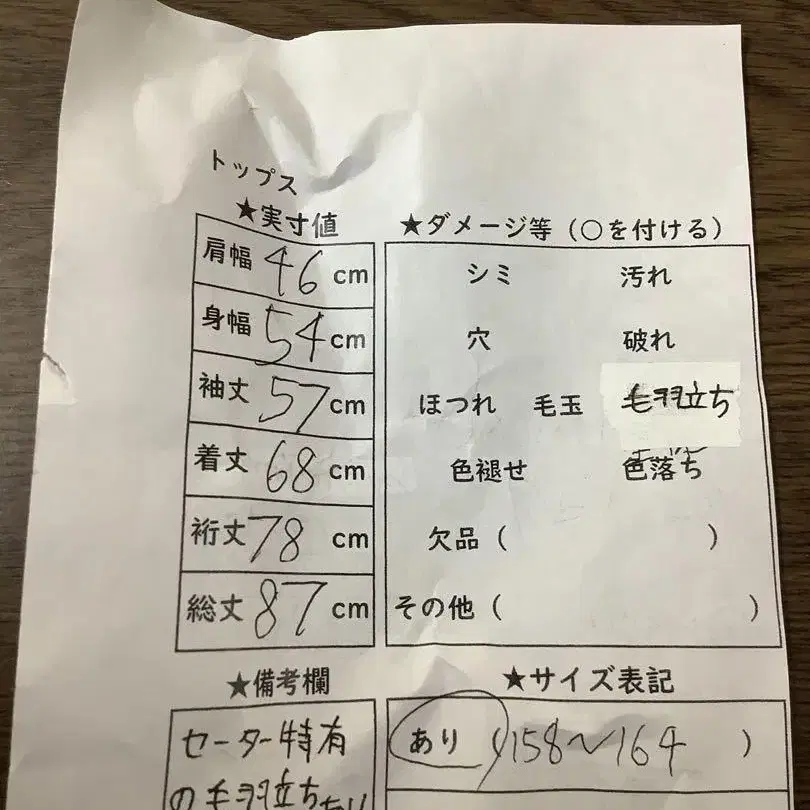 トップス
★実寸値
肩幅 46 cm
身幅 54 cm
袖丈 57 cm
着丈 68 cm
裄丈 78 cm
総丈 87 cm
★ダメージ等（○を付ける）
シミ 汚れ
穴 破れ
ほつれ 毛玉 毛羽立ち
色褪せ 色落ち
欠品（ ）
その他（ ）
★備考欄
セーター特有
の毛羽立ち
★サイズ表記
あり（158〜164 ）